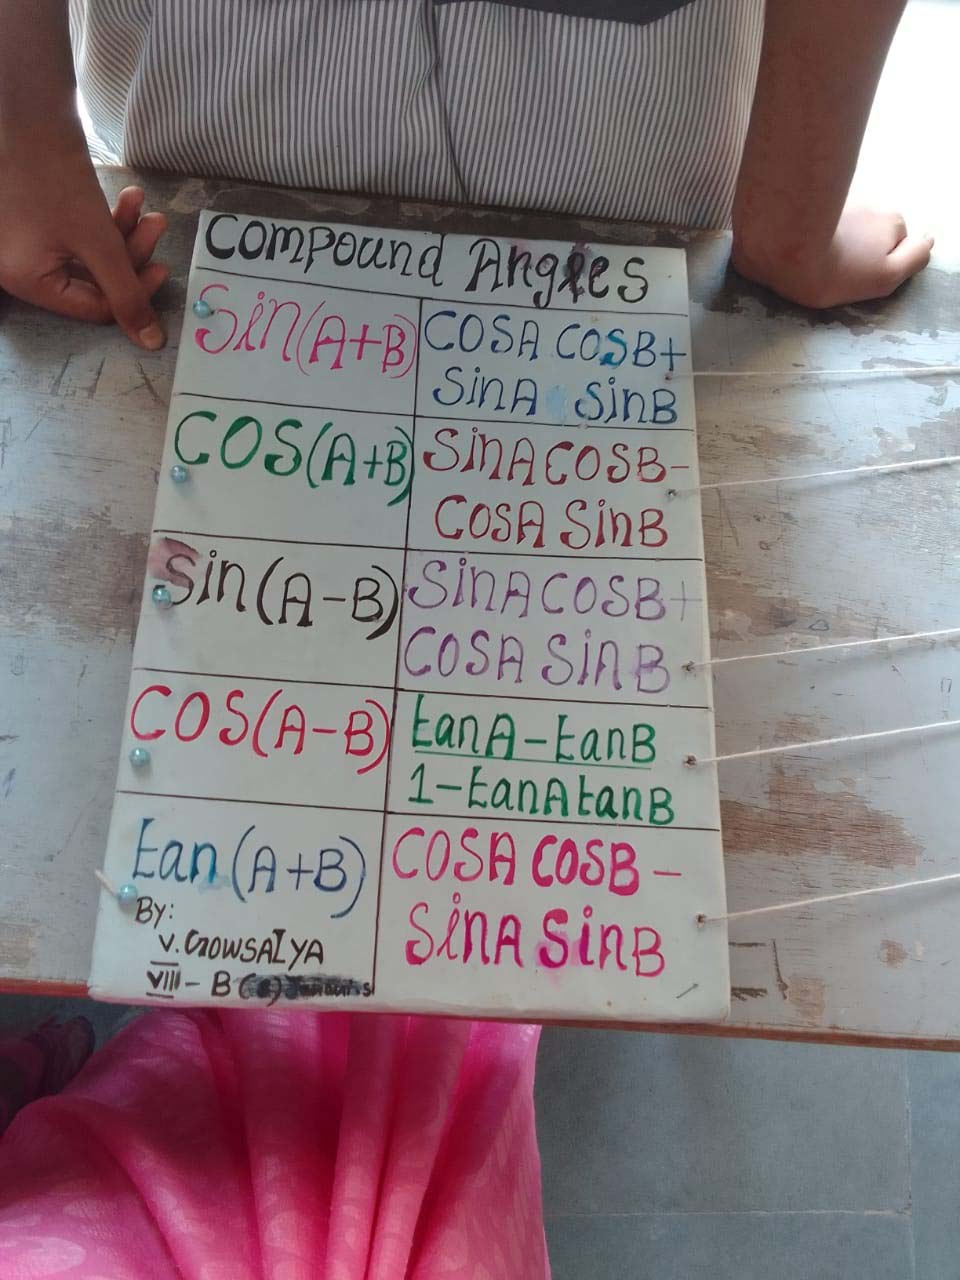 Compound Angles
Sin(A+B)
COSA COSB+
SinA SinB
COS(A+B)
SinA COSB-
COSA SinB
Sin(A-B)
SinA COSB+
COSA SinB
COS(A-B)
tanA-tanB
1-tanAtanB
tan(A+B)
COSA COSB-
SinA SinB
By:
V. GOWSALYA
VIII - B